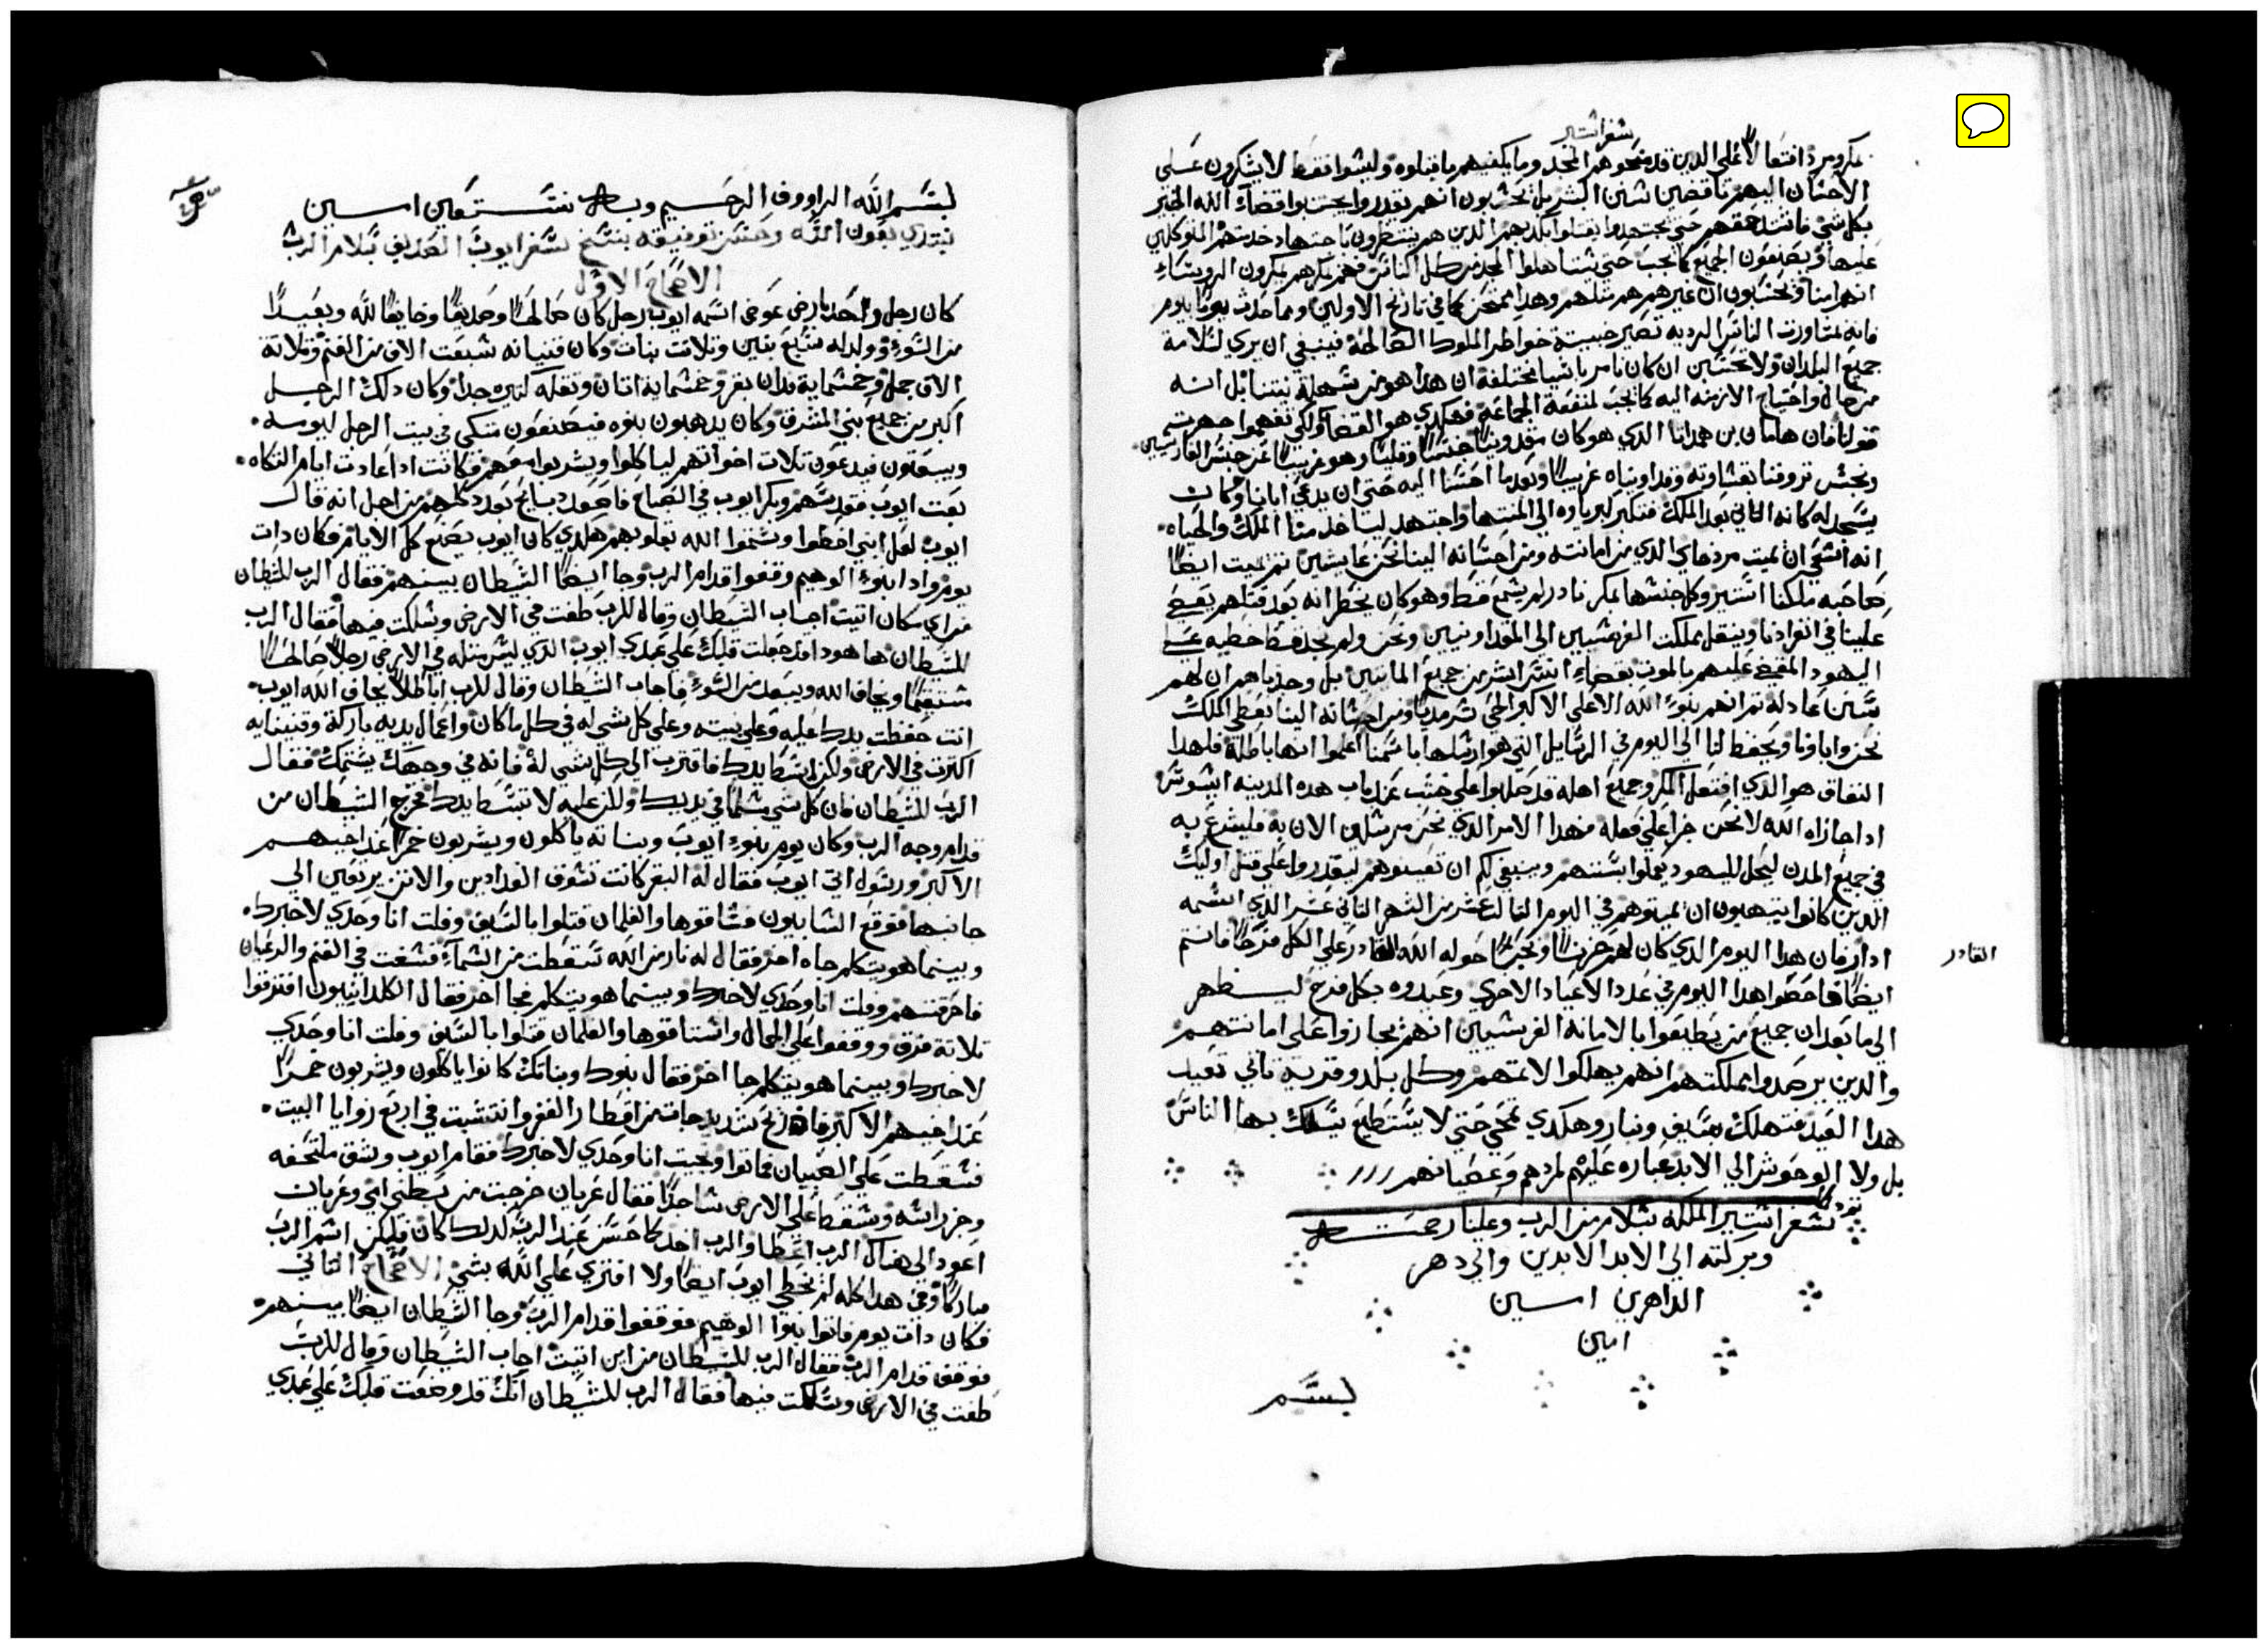 سفر استير
بمكرهم دافتعالاً على الذين قد منحوهم المجد وما يكفيهم ما قبلوه وليسوا فقط لا يشكرون على
الاحسان اليهم ناقضين سنن البشر بل يحسبون انهم يقدروا يجتنبوا قضاء الله الخبير
بكل شي
عليها ويصنعون الجميع كما يجب حتى يستاهلوا المجد من كل الناس فهم بمكرهم يمكرون الروساء
انهم امنا ويحسبون ان غيرهم هم مثلهم وهدا ممتحن كما في تاريخ الاولين ومما حدث يوماً بيوم
فانه بمشاورت الناس الرديه تصير خبيثة خواطر الملوك الصالحة فينبغي ان يري لسلامة
جميع البلدان ولا تحتسبن ان كان نامر باشيا مختلفة ان هدا هو من سهلة نيتنا بل انه
من حال واحتياج الازمنه اليه كما يجب لمنفعة الجماعة فهكدي هو القضا ولكي تفهموا جهر ثم
قولنا فان هامان بن همداتا الذي هو كان مقدونياً جنساً وقلباً وهو غريباً عن جنس الفارسيين
ونجس ترو فنا بقساوته وقد اويناه غريباً وبعد ما احسنا اليه حتى ان يدعي ابانا وكان
يسجد له كانه الثاني بعد الملك فتكبر كبرياوه الي المنتها واجتهد لياخد منا الملك والحياه
انه اشتهي ان يميت مردخاي الذي من امانته ومن احسانه الينا نحن عايشين ثم يميت ايضاً
صاحبه ملكنا استير وكل جنسها بمكر نادر لم يسمع قط وهو كان يخطر انه بعد قتلهم يقبض
علينا في انفرادنا وينقل مملكت الفرسيين الي المقداونيين ونحن ولم نجد قط خطيه على
اليهود المقضي عليهم بالموت بقضاء اشر البشر من جميع المايتين بل وجدناهم ان لهم
سنن عادلة ثم انهم بنوء الله الاعلى الاكبر الحي سرمدياً ومن احسانه الينا يعطي الملك
نحن واباونا ويحفظ لنا الي اليوم في الرسايل التي هو ارسلها باسمنا اعلموا انها باطلة فلهدا
النفاق هو الذي افتعل المكر وجميع اهله قد صلبوا على خشب عند باب هده المدينه اشوش
ادا جازاه الله لا نحن جزا على فعله فهدا الامر الذي نحن مرسلين الان به فليشرع به
في جميع المدن ليحل لليهود يعملوا بسنتهم وينبغي لكم ان تعينوهم ليقدروا على قتل اوليك
الدين كانوا يتهيون ان يميتوهم في اليوم الثالث عشر من الشهر الثاني عشر الذي اسمه
ادار فان هدا اليوم الذي كان لهم حزيناً ونحساً حوله الله القادر على الكل فرحاً فانتم
القادر
ايضاً فاحفظوا هدا اليوم في عدد الاعياد الاخري وعيدوه بكل فرح ليظهر
الي ما بعد ان جميع من يطيعوا بالامانه الفرسيين انهم يجازوا على امانتهم
والدين يرصدوا مملكتهم انهم يهلكوا لاثمهم وكل بلد وقرية تابي تعيد
هدا العيد فتهلك بسيف ونار وهكدي تمحي حتى لا يستطيع يسلك بها الناس
بل ولا الوحوش الي الابد عباره عليهم لردهم وعصيانهم
سفر استير الملكه بسلام من الرب وعلينا رحمته
وبركته الي الابد الابدين والي دهر
الداهرين امـين
امين
بسم
بسم الله الرووف الرحيم وبه نستعين امين
نبتدي بعون الله وحسن توفيقه بنسخ سفر ايوب الصديق بسلام الرب
الاصحاح الاول
كان رجل واحد بارض عوص اسمه ايوب رجل كان صالحاً وصديقاً وخايفاً لله وبعيداً
من السوء وولد له سبع بنين وتلات بنات وكان قنيانه سبعت الاف من الغنم وتلاتة
الاف جمل وخمسماية فدان بقر وخمسماية اتان ونقله كثيره جداً وكان دلك الرجل
اكبر من جميع بني المشرق وكان يدهبون بنوه فيصنعون متكى في بيت الرجل ليومه
ويبعتون فيدعون تلات اخواتهم لياكلوا ويشربوا معهم فكانت ادا عادت ايام التكاه
بعت ايوب فقدسهم وبكر ايوب في الصباح فاصعد دبايح بعدد كلهم من اجل انه قال
ايوب لعل ابني اخطوا وشتموا الله بقلوبهم هكدي كان ايوب يصنع كل الايام فكان دات
يوم واد ابنوء الوهيم وقفوا قدام الرب وجا ايضاً الشيطان بينهم فقال الرب للشيطان
من اي مكان اتيت اجاب الشيطان وقال للرب طفت في الارض وسلكت فيها فقال الرب
للشيطان ها هودا قد جعلت قلبك على عبدي ايوب الذي ليس مثله في الارض رجلاً صالحاً
مستقيماً ويخاف الله ويبعد من السوء فاجاب الشيطان وقال للرب اباطلاً يخاف الله ايوب
انت حفظت يدك عليه وعلى بيته وعلى كل شي له في كل ما كان واعمال يديه باركة وقنيانه
اكترت في الارض ولكن ابسط يدك فاقترب الي كل شي له فانه في وجهك يشتمك فقال
الرب للشيطان فان كل شي مسلماً في يديك ولكن عليه لا تبسط يدك فخرج الشيطان من
قدام وجه الرب وكان يوم بنوء ايوب وبناته ياكلون ويشربون خمراً عند اخيهم
الاكبر ورسول اتي ايوب فقال له البقر كانت تسوق الفدادين والاتن يرتعين الي
جانبها فوقع السابيون فساقوها والغلمان قتلوا بالسيف وفلت انا وحدي لاخبرك
وبينما هو يتكلم جاه اخر فقال له نار من الله سقطت من السماء فسعت في الغنم والرعيان
فاحرقتهم وفلت انا وحدي لاخبرك وبينما هو يتكلم فجا اخر فقال الكلدانيون افترقوا
تلاتة فرق ووقعوا على الجمال واستاقوها والغلمان قتلوا بالسيف وفلت انا وحدي
لاخبرك وبينما هو يتكلم جا اخر فقال بنوك وبناتك كانوا ياكلون ويشربون خمراً
عند اخيهم الاكبر فاد ريح شديد جات من اقطار القفر وانتشبت في اربع زوايا البيت
فسقطت على الصبيان فماتوا ونجيت انا وحدي لاخبرك فقام ايوب وشق ملتحفه
وجز راسه وسقط على الارض ساجداً فقال عريان خرجت من بطن امي وعريان
اعود الي هناك الرب اعطا والرب اخد كما حسن عند الرب لدلك كان فليكن اسم الرب
مباركاً وفي هدا كله لم يخطي ايوب ايضاً ولا افتري على الله بشي الاصحاح التاني
فكان دات يوم فاتوا بنوا الوهيم فوقفوا قدام الرب وجا الشيطان ايضاً بينهم
فوقف قدام الرب فقال الرب للشيطان من اين اتيت اجاب الشيطان وقال للرب
طفت في الارض وسلكت فيها فقال الرب للشيطان اتك قد وضعت قلبك على عبدي